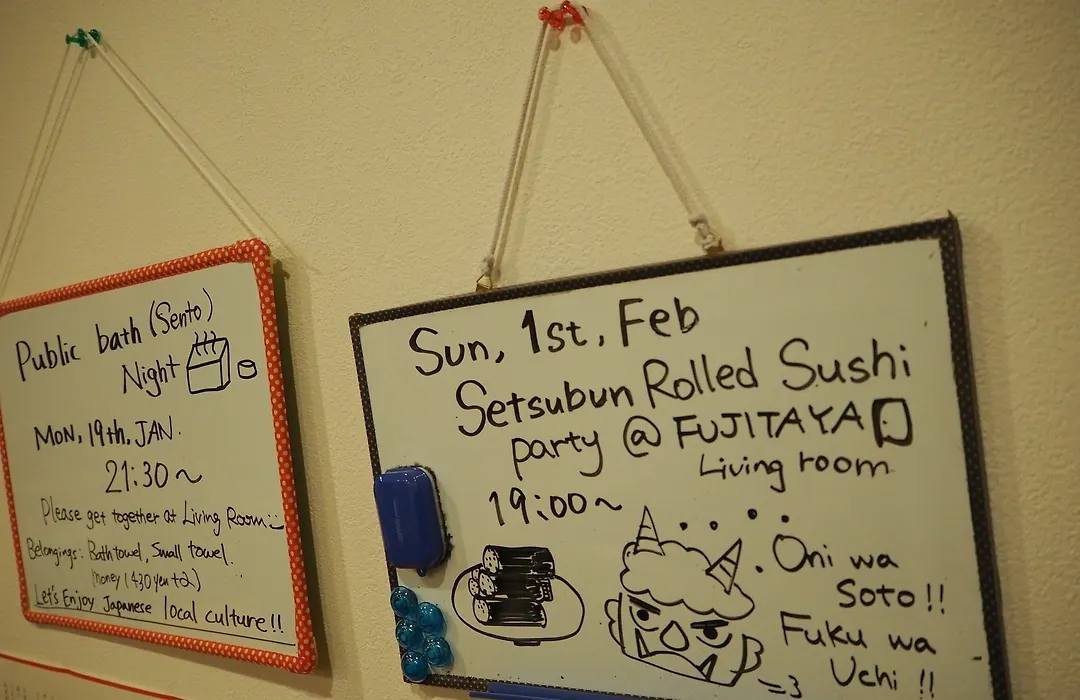 Public bath (Sento)
Night
MON, 19th, JAN.
21:30~
Please get together at Living Room
Belongings: Bath towel, Small towel.
Money (430 yen
Let's Enjoy Japanese local culture!!
Sun, 1st, Feb
Setsubun Rolled Sushi
party @ FUJITAYA
Living room
19:00~
Oni wa
Soto!!
Fuku wa
Uchi!!